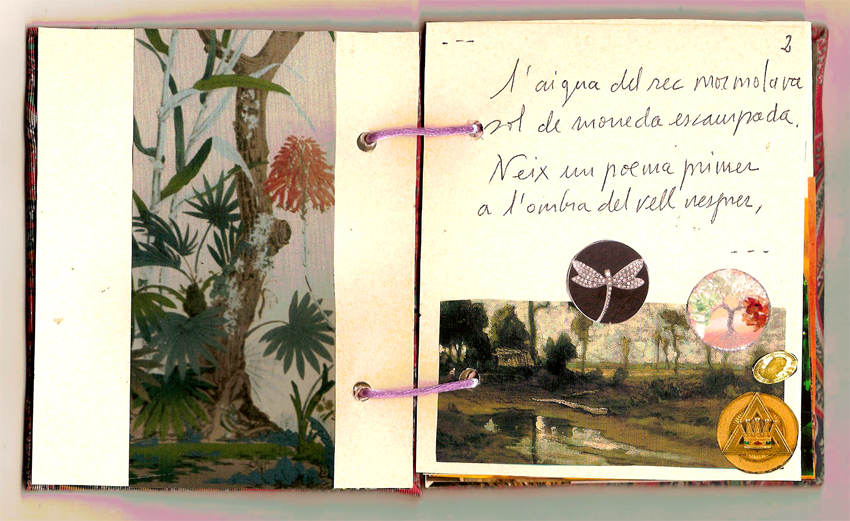 --- 2
l'aigua del rec mormolava
sol de moneda escampada.
Neix un poema primer
a l'ombra del vell nesprer,
---